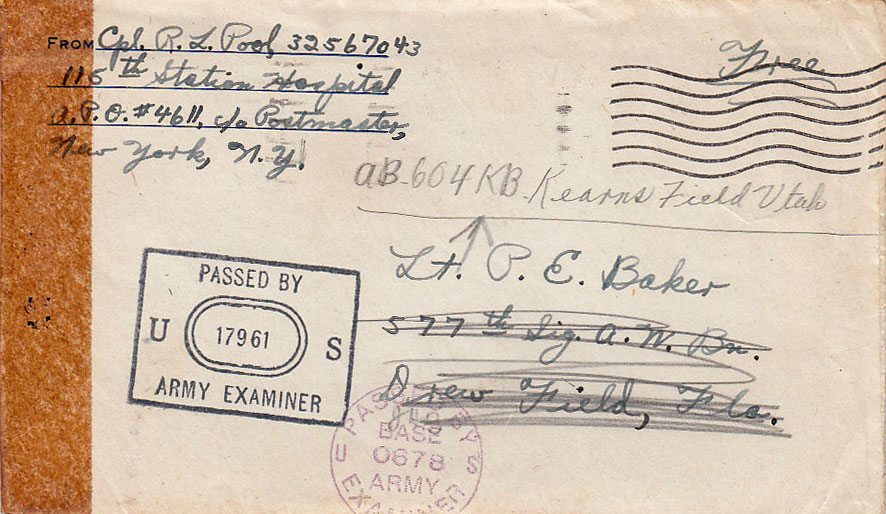 FROM Cpl. R. L. Pool, 32567043
115th Station Hospital
A.P.O. #4611, c/o Postmaster,
New York, N.Y.
Free
AB-604 KB Kearns Field Utah
Lt. P. E. Baker
577th Sig. A. W. Bn.
Drew Field, Fla.
PASSED BY
U 17961 S
ARMY EXAMINER
PASSED BY
BASE
U 0678 S
ARMY
EXAMINER